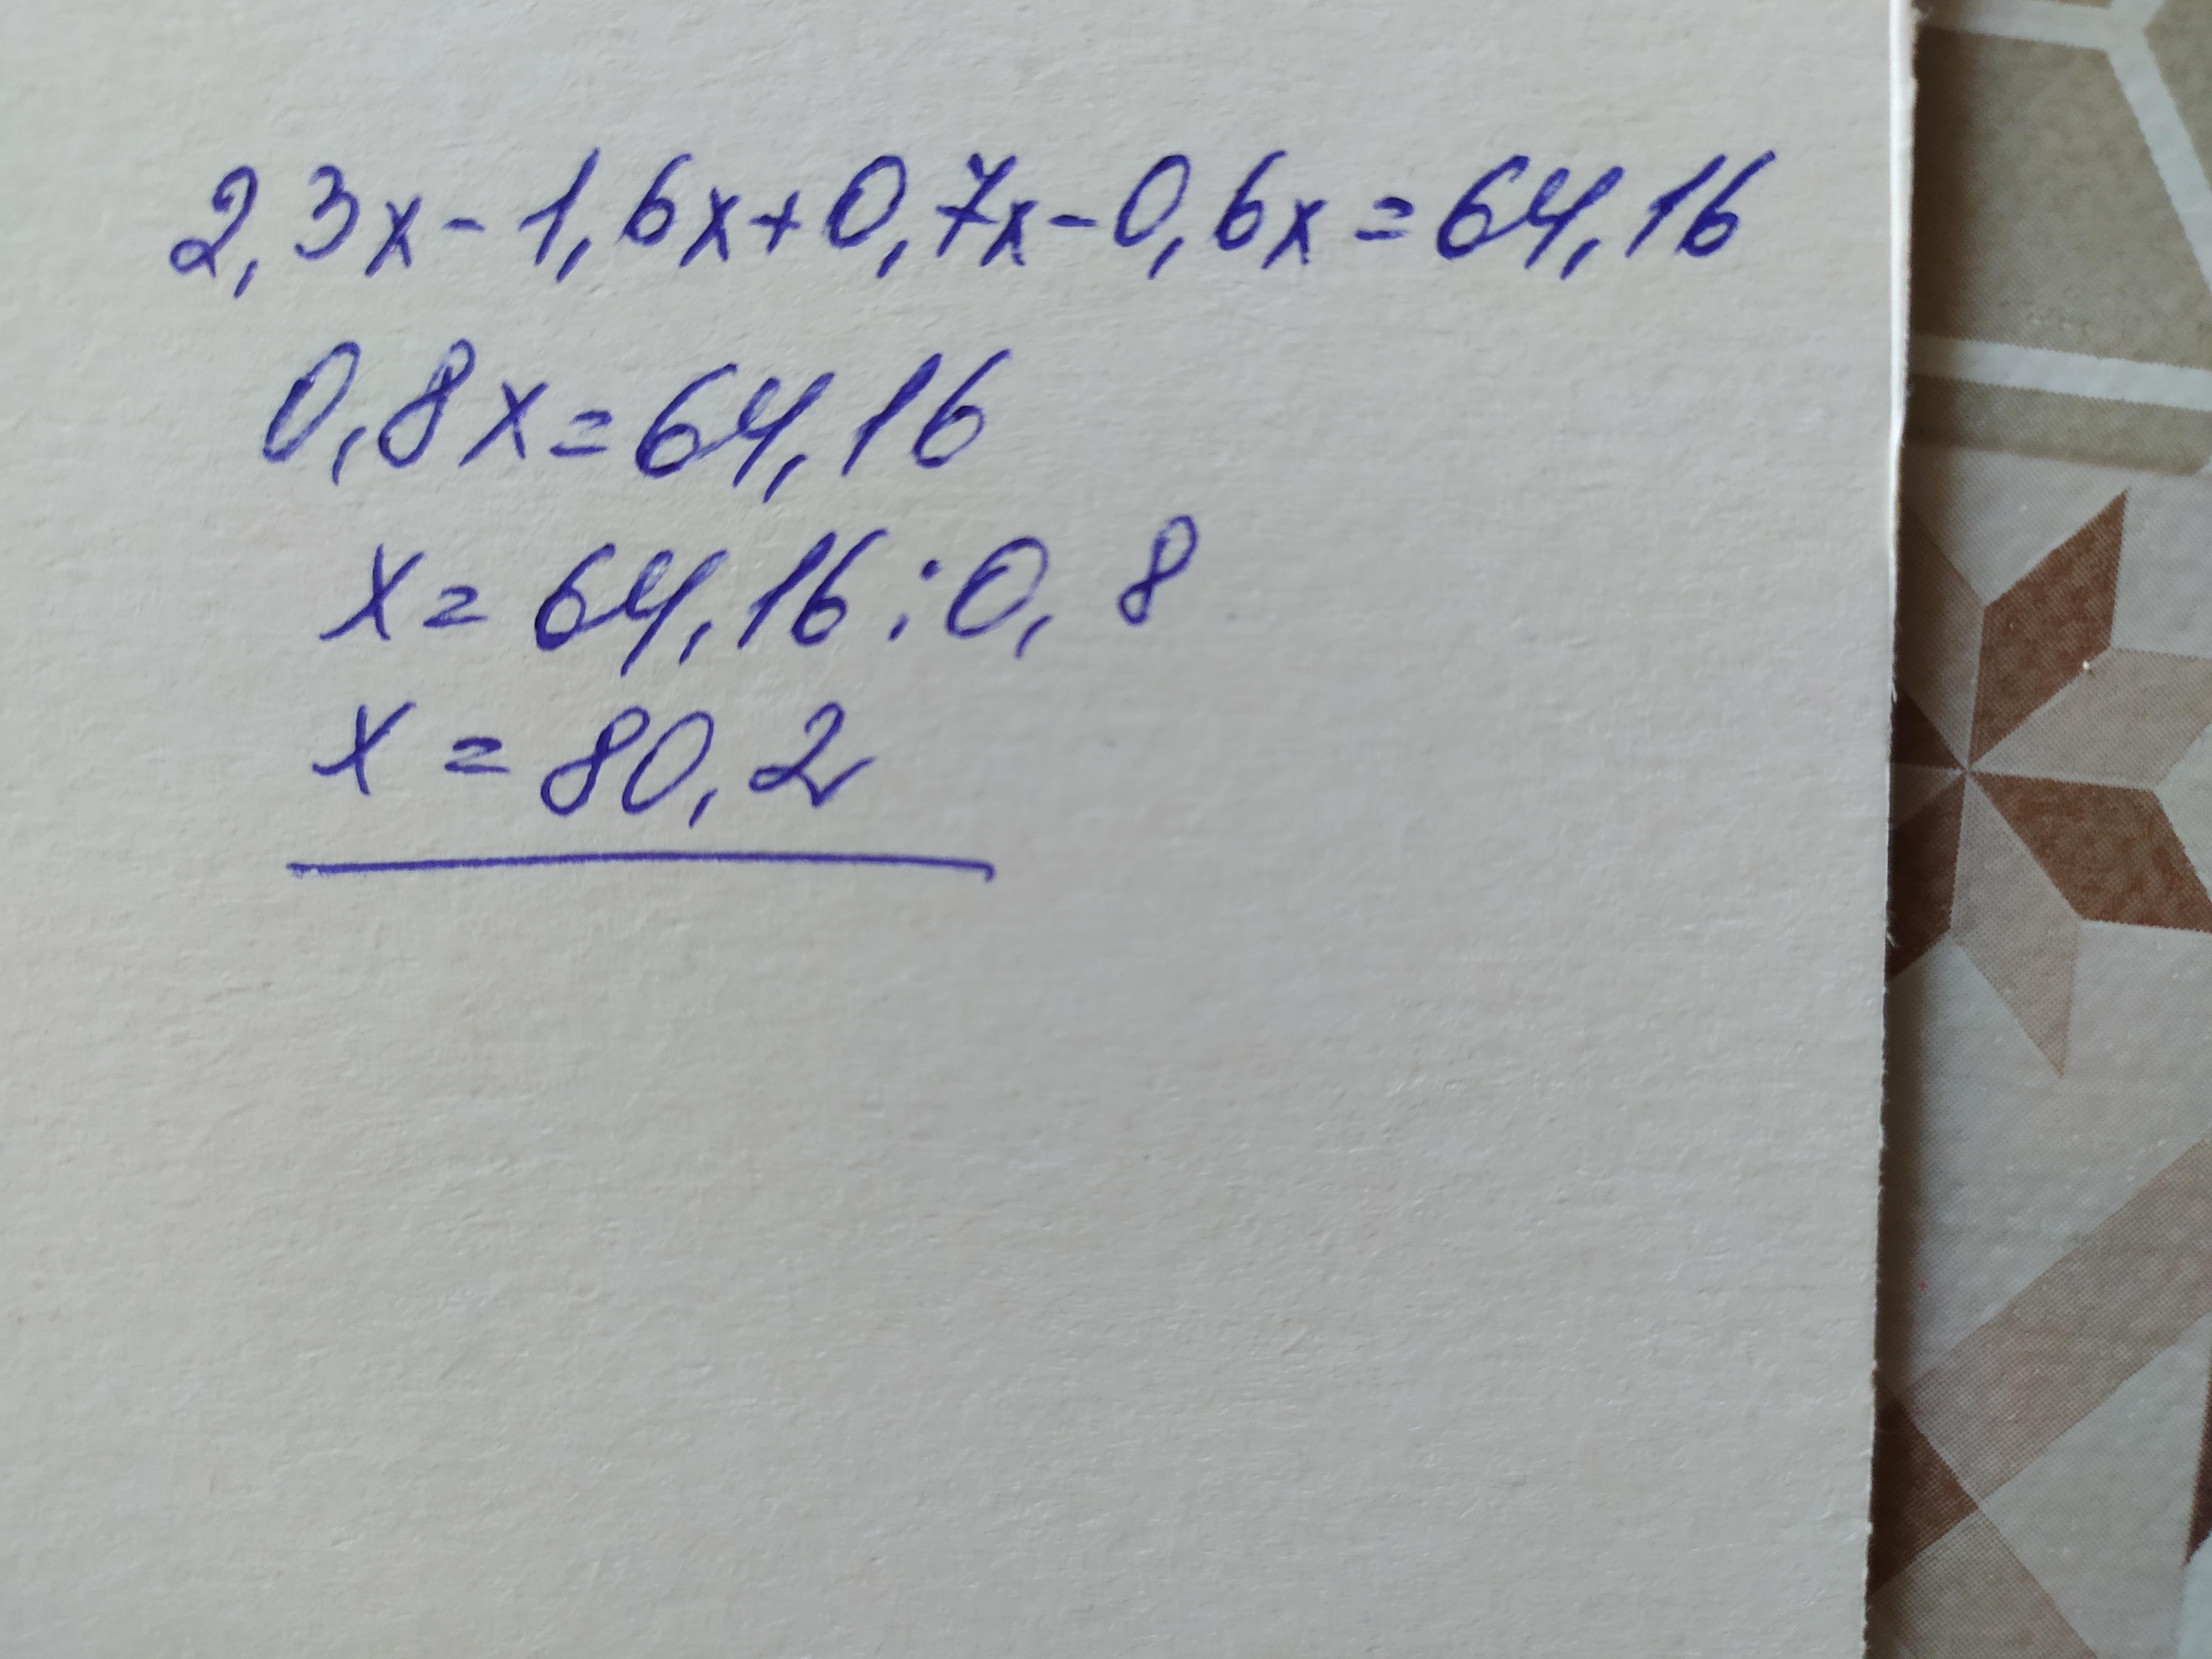 2,3x-1,6x+0,7x-0,6x=64,16
0,8x=64,16
x=64,16:0,8
x=80,2